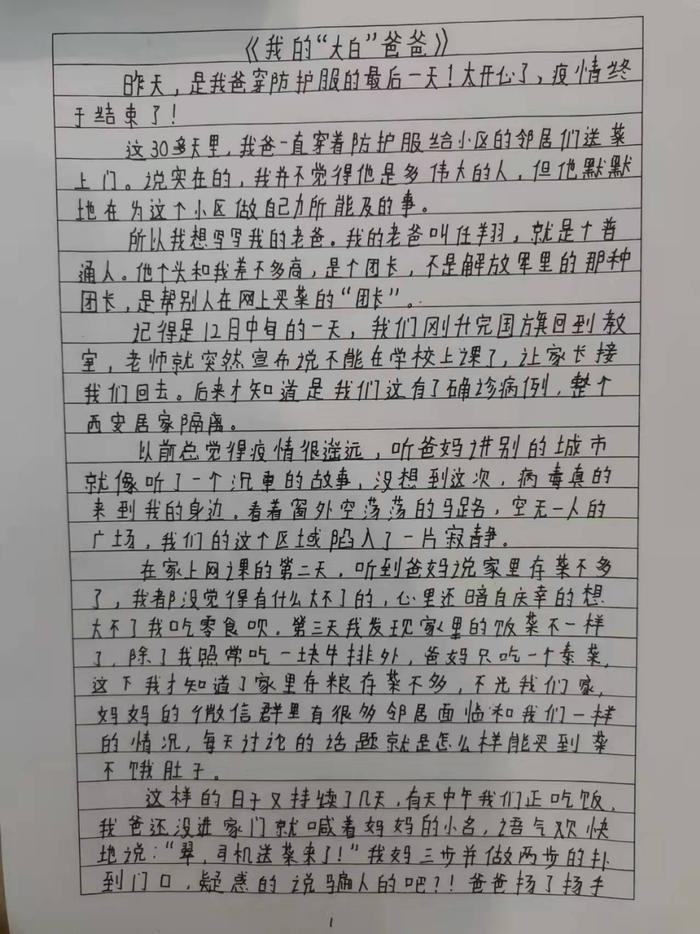 《我的“大白”爸爸》
昨天，是我爸穿防护服的最后一天！太开心了，疫情终
于结束了！
这30多天里，我爸一直穿着防护服给小区的邻居们送菜
上门。说实在的，我并不觉得他是多伟大的人，但他默默
地在为这个小区做自己力所能及的事。
所以我想写写我的老爸。我的老爸叫任羽，就是个普
通人。他个头和我差不多高，是个团长，不是解放军里的那种
团长，是帮别人在网上买菜的“团长”。
记得是12月中旬的一天，我们刚升完国旗回到教
室，老师就突然宣布说不能在学校上课了，让家长接
我们回去。后来才知道是我们这有了确诊病例，整个
西安居家隔离。
以前总觉得疫情很遥远，听爸妈讲别的城市
就像听了一个沉重的故事，没想到这次，病毒真的
来到我的身边。看着窗外空荡荡的马路，空无一人的
广场，我们的这个区域陷入了一片寂静。
在家上网课的第二天，听到爸妈说家里存菜不多
了，我都没觉得有什么大不了的，心里还暗自庆幸的想
大不了我吃零食呗。第三天我发现家里的饭菜不一样
了，除了我照常吃一块牛排外，爸妈只吃一个素菜，
这下我才知道了家里存粮存菜不多，不光我们家，
妈妈的微信群里有很多邻居面临和我们一样
的情况，每天讨论的话题就是怎么样能买到菜
不饿肚子。
这样的日子又持续了几天，有天中午我们正吃饭，
我爸还没进家门就喊着妈妈的小名，语气欢快
地说：“翠，司机送菜来了！”我妈三步并做两步的扑
到门口，疑惑的说骗人的吧？！爸爸扬了扬手
1